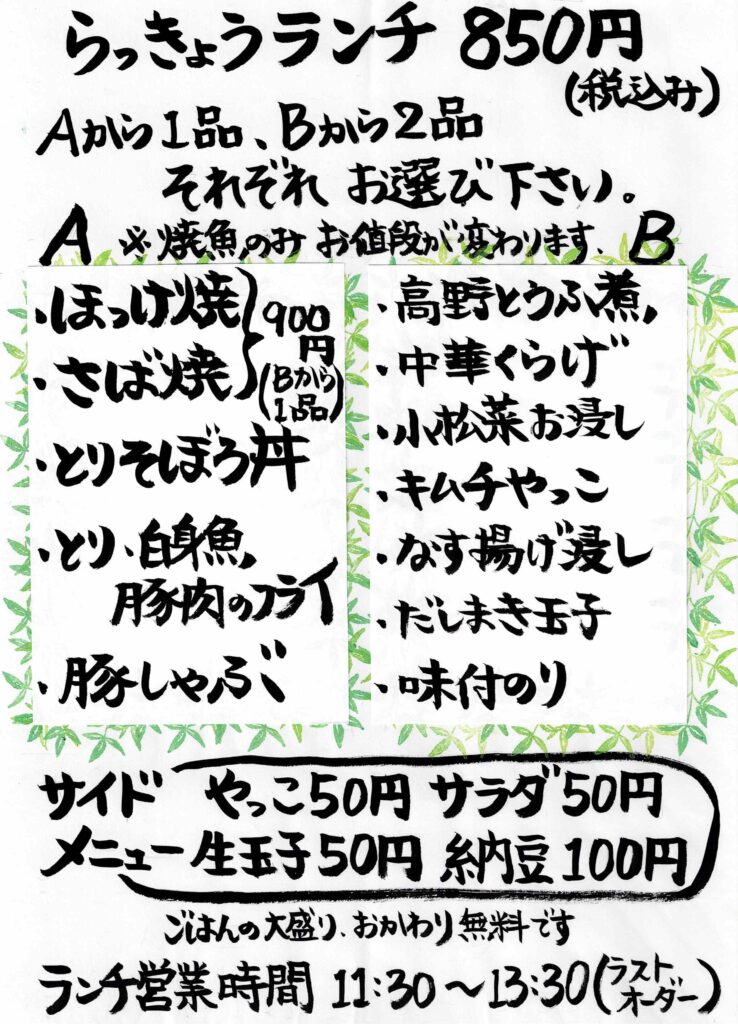 らっきょうランチ 850円
(税込み)
Aから1品、Bから2品
それぞれ お選び下さい。
A ※焼魚のみ お値段が変わります、 B
・ほっけ焼
・さば焼
900円
(Bから1品)
・とりそぼろ丼
・とり、白身魚、
豚肉のフライ
・豚しゃぶ
・高野とうふ煮
・中華くらげ
・小松菜お浸し
・キムチやっこ
・なす揚げ浸し
・だしまき玉子
・味付のり
サイド やっこ50円 サラダ50円
メニュー 生玉子50円 納豆100円
ごはんの大盛り、おかわり無料です
ランチ営業時間 11:30〜13:30(ラストオーダー)